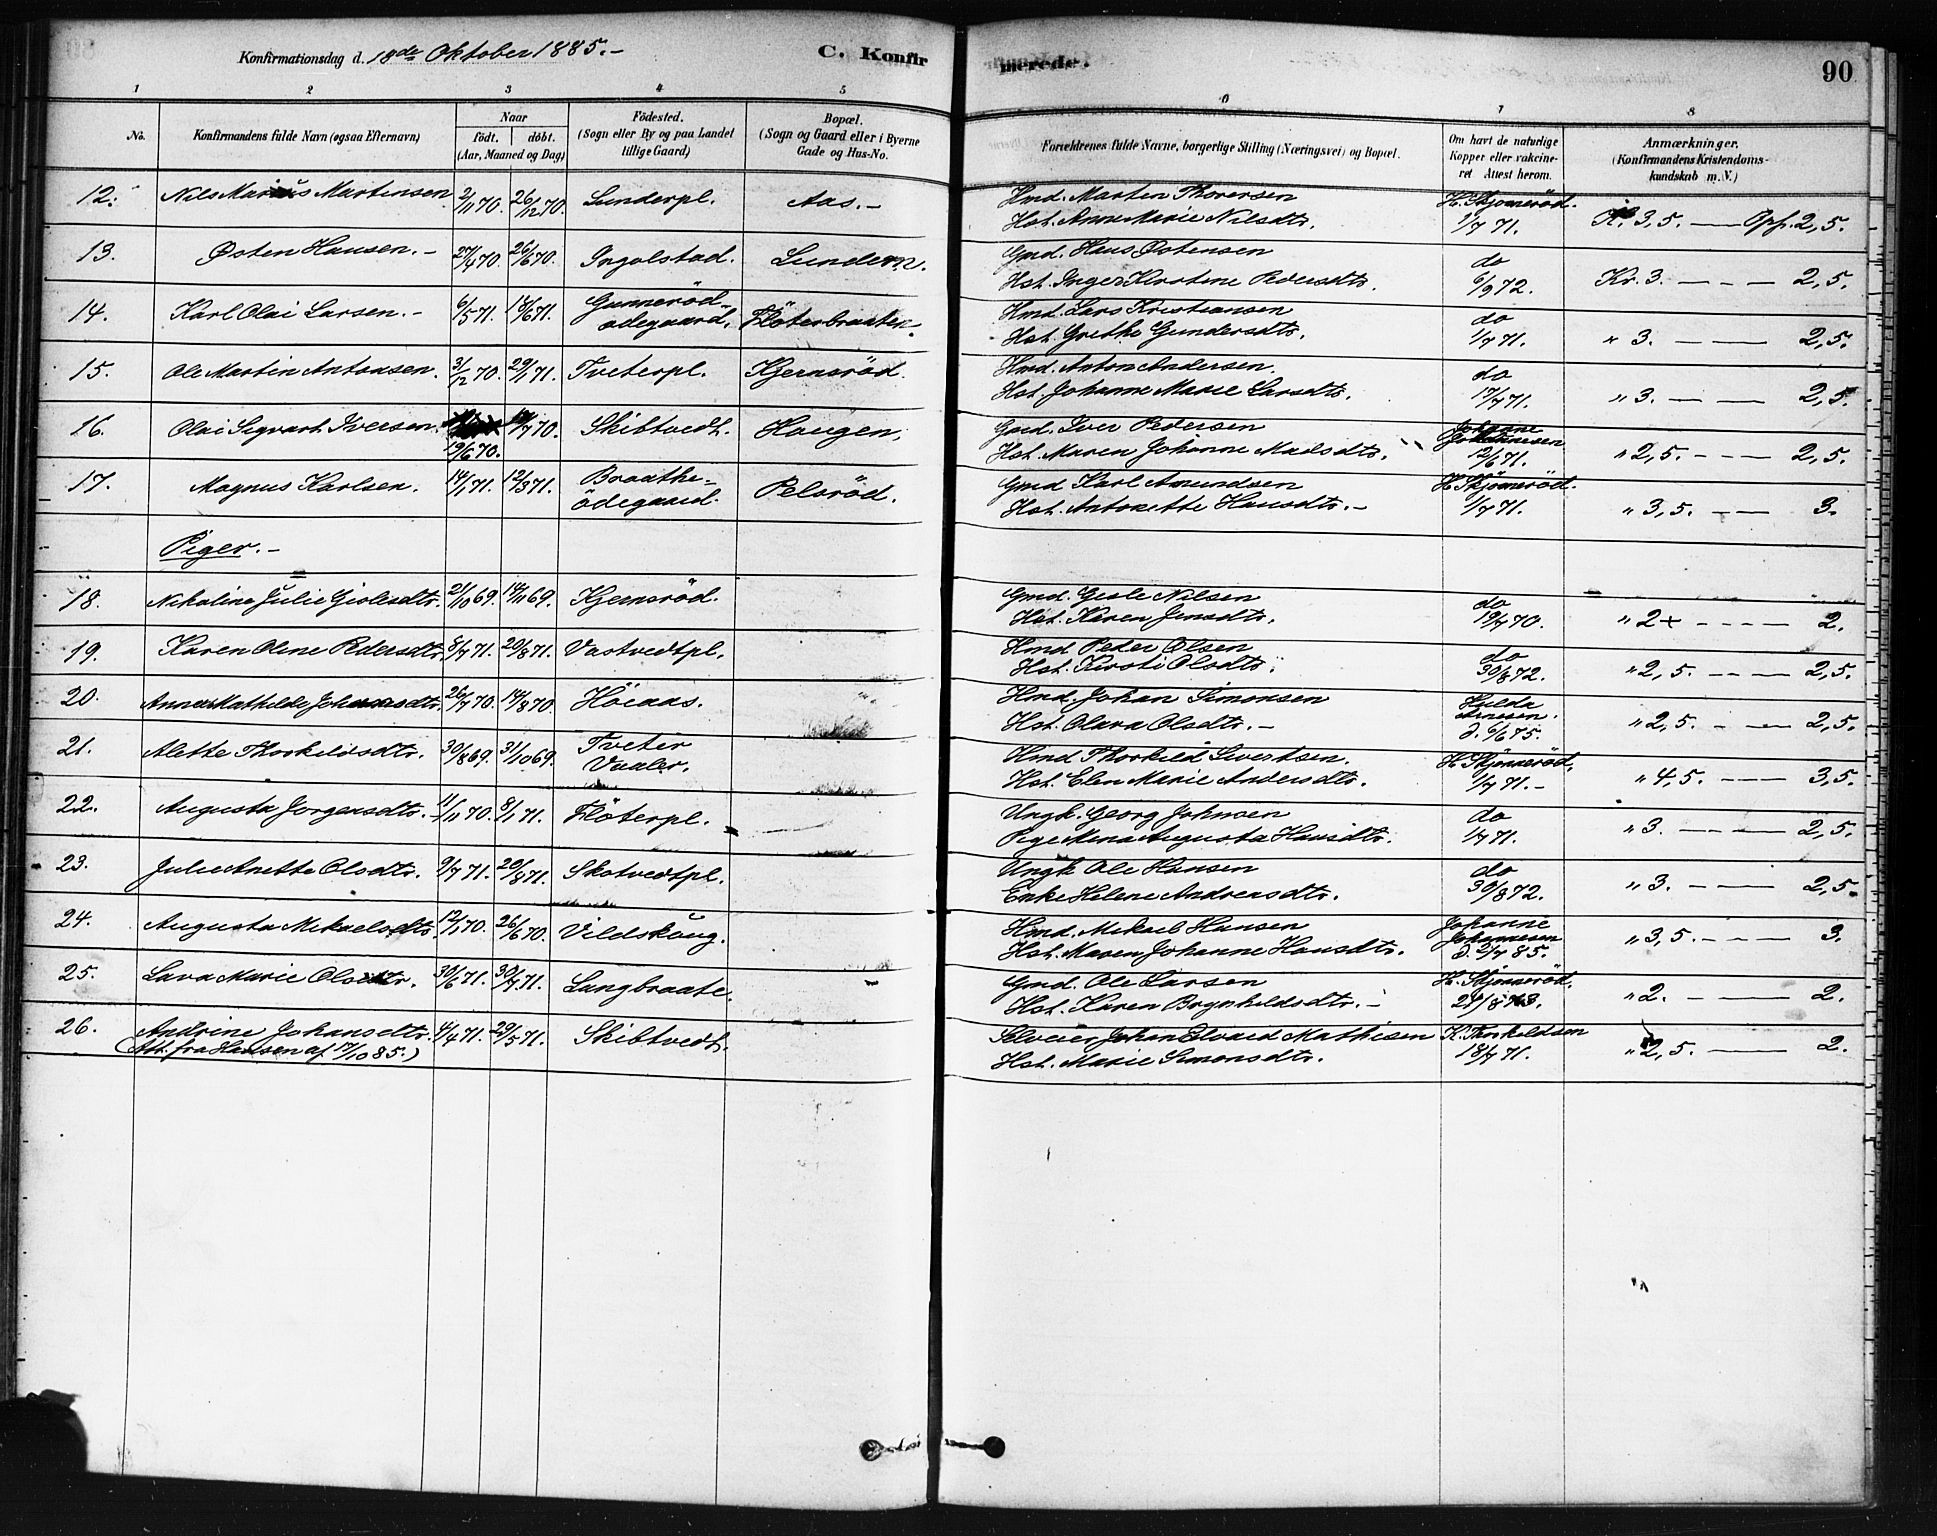 Konfirmationsdag d. 18de Oktober 1885.-
C. Konfirmerede.
90
1 2 3 4 5 6 7 8
No.
Konfirmandens fulde Navn (ogsaa Efternavn)
Naar
født. døbt.
(Aar, Maaned og Dag)
Fødested.
(Sogn eller By og paa Landet
tillige Gaard)
Bopæl.
(Sogn og Gaard eller i Byerne
Gade og Hus-No.
Forældrenes fulde Navne, borgerlige Stilling (Næringsvei) og Bopæl.
Om havt de naturlige
Kopper eller vakcine-
ret Attest herom.
Anmærkninger.
(Konfirmandens Kristendoms-
kundskab m.V.)
12. Nils Marius Martinsen 2/11 70. 26/12 70. Lunderpl. Aas.- Hmd. Marten Thorersen
Hst. Anne Marie Nilsdtr. H. Skjönneröd. 1/7 71. K. 3,5. — Oph. 2,5.
13. Østen Hansen.- 27/4 70. 26/6 70. Ingolstad. Lundern. Gmd. Hans Östensen
Hst. Inger Kirstine Pedersdtr. do 6/9 72. Kr. 3. — 2,5.
14. Karl Olai Larsen.- 6/5 71. 18/6 71. Gunneröd-
ödegaard. Flöterbraaten. Hmd. Lars Kristiansen
Hst. Grethe Gundersdtr. do 1/7 71. " 3. — 2,5.
15. Ole Martin Antonsen. 3/12 70. 29/1 71. Tveterpl. Kjernsröd. Hmd. Anton Andersen.
Hst. Johanne Marie Larsdtr. do 17/7 71. " 3. — 2,5.
16. Olai Sigvart Iversen. 19/6 70. /7 70. Skibtvedt. Haugen. Gmd. Iver Pedersen
Hst. Maren Johanne Madsdtr. Johanne
Johannesen
12/6 71. " 2,5. — 2,5.
17. Magnus Karlsen. 14/1 71. 12/3 71. Braathe-
ödegaard. Pelsröd. Gmd Karl Amundsen
Hst. Antonette Hansdtr.- H. Skjönneröd. 1/7 71. " 3,5. — 3.
Piger.-
18. Nikoline Julie Gislesdtr. 21/10 69. 14/11 69. Kjernsröd. Gmd. Gisle Nilsen
Hst. Karen Jensdtr. do 19/7 70. " 2+ — 2.
19. Karen Oline Pedersdtr. 8/7 71. 20/8 71. Vastvedtpl. Hmd Peter Olsen
Hst. Kirsti Olsdtr. do 30/8 72. " 2,5. — 2,5.
20. Anne Mathilde Johansdtr. 26/7 70. 14/8 70. Höiaas. Hmd. Johan Simonsen
Hst. Olava Olsdtr.- Hulda
Arnesen.
d. 6/6 75. " 2,5. — 2,5.
21. Alette Thorkildsdtr. 30/8 69. 31/10 69. Tveter
Vaaler. Hmd Thorkild Sivertsen.
Hst. Elen Marie Andersdtr. H. Skjönneröd. 1/7 71.- " 4,5. — 3,5.
22. Augusta Jorgensdtr. 11/11 70. 8/1 71. Flöterpl. Ungk. Georg Johnsen
Pige Mina Augusta Hansdtr. do 1/7 71. " 3. — 2,5.
23. Julie Anette Olsdtr. 9/7 71. 20/8 71. Skotvedtpl. Ungk Ole Hansen
Enke Helene Andreasdtr. do 30/8 72. " 3. — 2,5.
24. Augusta Mikaelsdtr. 12/1 70. 26/6 70. Vildskoug. Hmd. Mikael Hansen
Hst. Maren Johanne Hansdtr. Johanne
Johannesen
d. 2/7 85. " 3,5. — 3.
25. Lava Marie Olsdtr. 30/6 71. 30/7 71. Langbraate. Gmd. Ole Larsen
Hst. Karen Brynhildsdtr.- H. Skjönneröd. " 2. — 2.
26. Andrine Johansdtr. 4/4 71. 29/5 71. Skibtvedt.
(Att. fra Hansen af 17/10 85.) Selveier Johan Edvard Mathisen
Hst. Marie Simonsdtr. K. Thorkildsen 18/7 71. " 2,5. — 2.